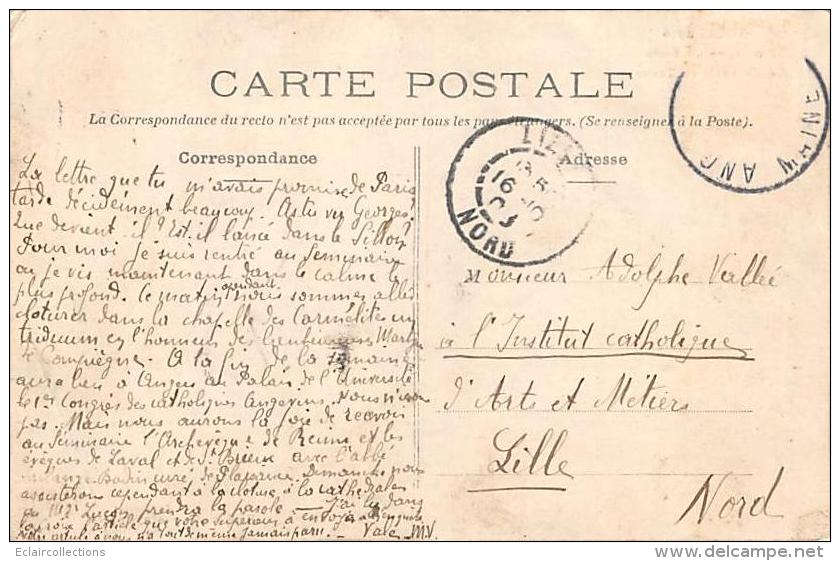 CARTE POSTALE
La Correspondance du recto n'est pas acceptée par tous les pays étrangers. (Se renseigner à la Poste).
Correspondance
Adresse
La lettre que tu m'avais promise de Paris
tarde décidément beaucoup. As tu vu Georges?
Que devient-il? Est-il lancé dans le Sillon?
Pour moi je suis rentré au Séminaire
où je vis maintenant dans le calme le
plus profond. Ce matin nous sommes allés
cloturer dans la chapelle des Carmélites un
triduum en l'honneur des bienheureuses Martyres
de Compiègne. A la fin de la semaine
aura lieu à Angers au Palais de l'Université
le 1er Congrès des catholiques Angevins. Nous n'irons
pas. Mais nous aurons la joie de recevoir
au Séminaire l'Archevêque de Reims et les
évêques de Laval et de St Brieuc avec l'abbé
curé de Plaisance. Dimanche nous
assisterons cependant à la cloture à la cathédrale
où Mgr Luçon prendra la parole — J'ai lu dans
la croix l'article que votre supérieur a envoyé
Notre article à nous n'a tout de même jamais paru! — Vale — M.V.
LILLE
16
NORD
MAINE
Monsieur Adolphe Vallée
à l'Institut catholique
d'Arts et Métiers
Lille
Nord
Eclaircollections
www.delcampe.net